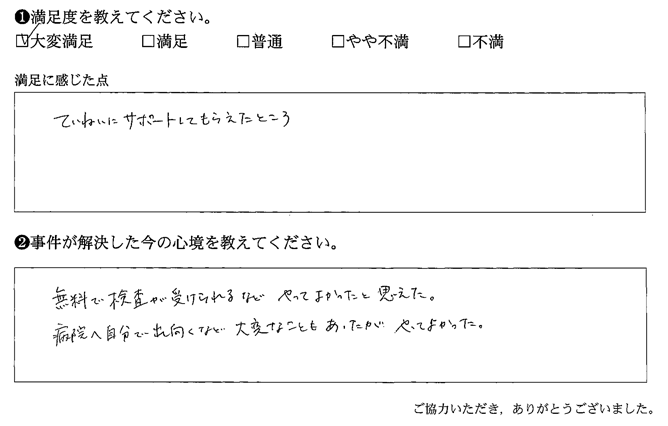 ❶満足度を教えてください。
☑大変満足 □満足 □普通 □やや不満 □不満
満足に感じた点
ていねいにサポートしてもらえたところ
❷事件が解決した今の心境を教えてください。
無料で検査が受けられるなど やってよかったと思えた。
病院へ自分で出向くなど 大変なこともあったが やってよかった。
ご協力いただき，ありがとうございました。